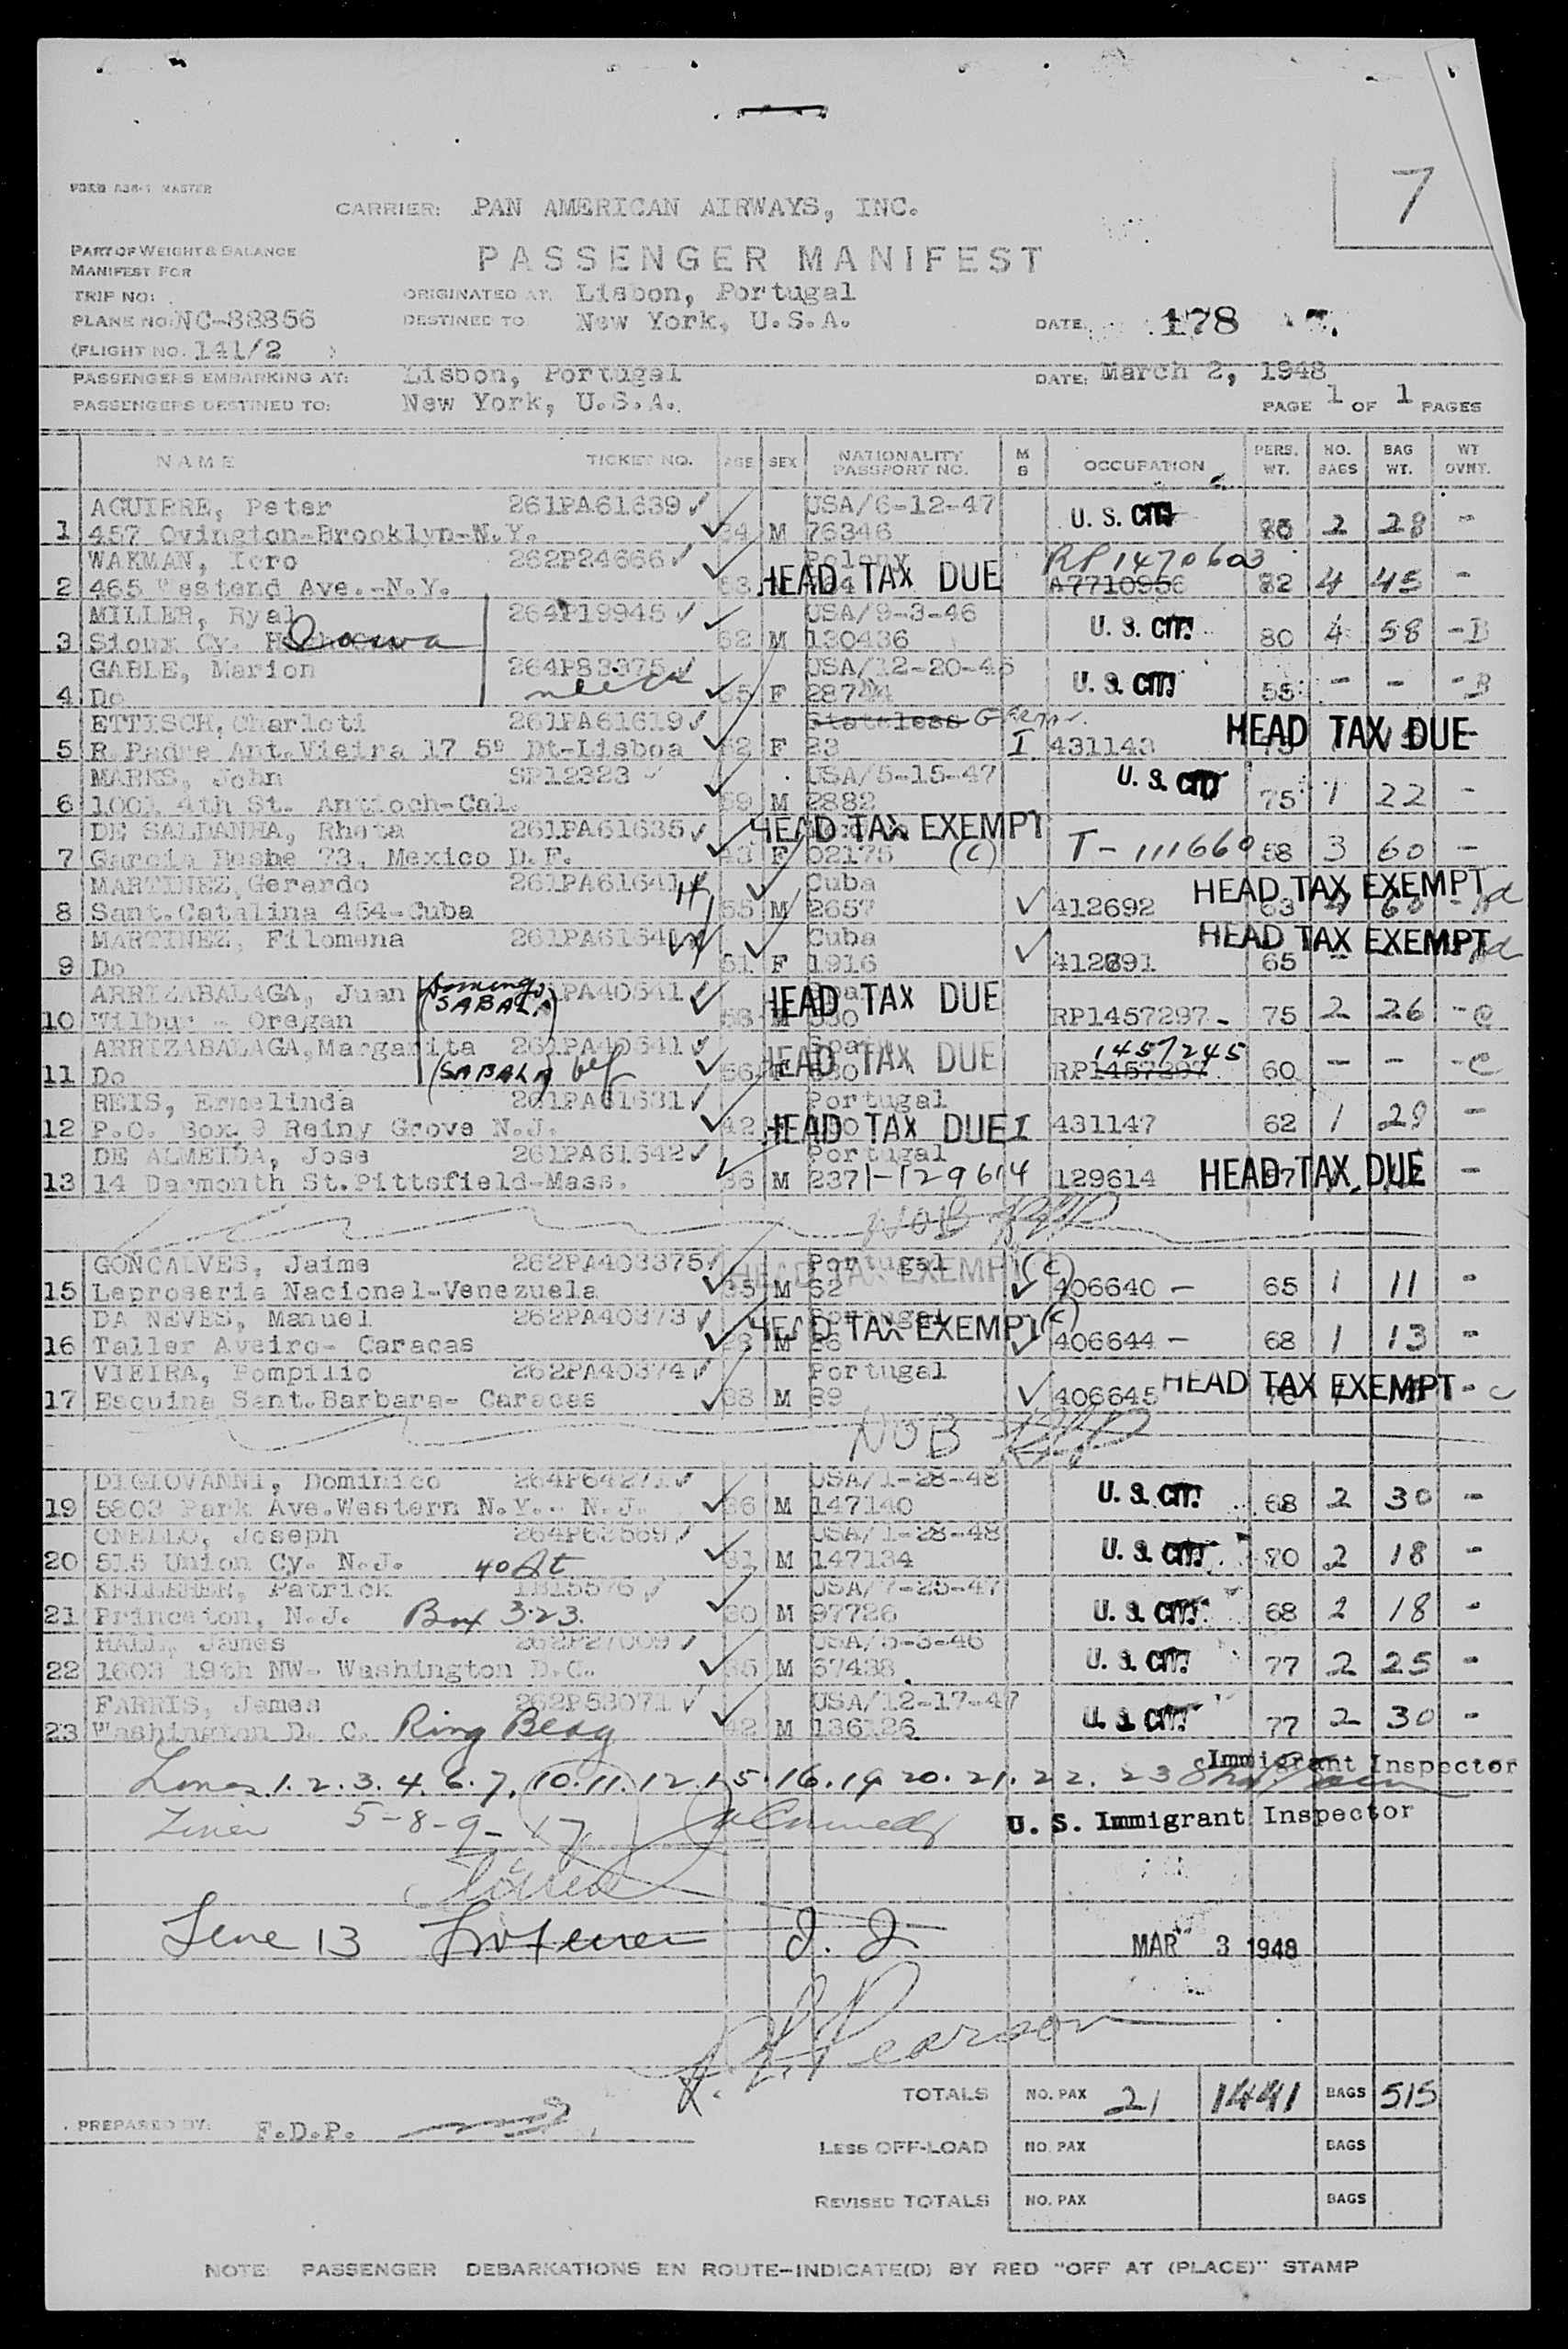 FORM A38-1 MASTER
7
CARRIER: PAN AMERICAN AIRWAYS, INC.
PART OF WEIGHT & BALANCE
MANIFEST FOR
PASSENGER MANIFEST
TRIP NO:
ORIGINATED AT: Lisbon, Portugal
PLANE NO: NC-88856
DESTINED TO New York, U.S.A.
DATE: 178
(FLIGHT NO. 141/2 )
PASSENGERS EMBARKING AT: Lisbon, Portugal
DATE: March 2, 1948
PASSENGERS DESTINED TO: New York, U.S.A.
PAGE 1 OF 1 PAGES
NAME TICKET NO. AGE SEX NATIONALITY PASSPORT NO. M S OCCUPATION PERS. WT. NO. BAGS BAG WT. WT OVNT.
AGUIRRE, Peter 261PA61639 ✓ USA/6-12-47 U. S. CIT.
1 457 Ovington-Brooklyn-N.Y. 34 M 76346 2 28 -
WAKMAN, 262P24666 ✓ Polony RP1470603
2 465 Westend Ave.-N.Y. 53 HEAD TAX DUE A7710956 82 4 45 -
MILLER, Ryal 264P19945 ✓ USA/9-3-46 U. S. CIT.
3 Sioux Cy. Iowa 52 M 130436 80 4 58 - B
GABLE, Marion 264P83375 ✓ USA/12-20-46 U. S. CIT.
4 Do niece F 28744 55 - - - B
ETTISCH, Charloti 261PA61619 ✓ Stateless Germ.
5 R. Padre Ant. Vieira 17 5º Dt-Lisboa 62 F 23 I 431143 HEAD TAX DUE -
MARKS, John SP12323 ✓ USA/5-15-47 U. S. CIT.
6 1001 4th St. Antioch-Cal. 59 M 2882 75 1 22 -
DE SALDANHA, Rheta 261PA61635 ✓ HEAD TAX EXEMPT
7 Garcia 73, Mexico D.F. 43 F 02175 (C) T-111660 58 3 60 -
MARTINEZ, Gerardo 261PA61641 H Cuba
8 Sant. Catalina 454-Cuba 55 M 2657 ✓ 412692 HEAD TAX EXEMPT
MARTINEZ, Filomena 261PA61641 W Cuba
9 Do 51 F 1916 ✓ 412691 65 HEAD TAX EXEMPT
ARRIZABALAGA, Juan Domingo PA40641 ✓ HEAD TAX DUE
10 Wilbur - Oregan (SABALA) 53 M RP1457297 - 75 2 26 - C
ARRIZABALAGA, Margarita 261PA40641 ✓ HEAD TAX DUE 1457245
11 Do (SABALA) 56 F RP1457297 60 - - - C
REIS, Ermelinda 261PA61631 ✓ Portugal
12 P.O. Box 9 Reiny Grove N.J. 42 HEAD TAX DUE I 431147 62 1 29 -
DE ALMEIDA, Jose 261PA61642 ✓ Portugal
13 14 Darmonth St. Pittsfield-Mass. 36 M 237 1-129614 129614 HEAD TAX DUE -
NOB
GONCALVES, Jaime 262PA403375 ✓ Portugal HEAD TAX EXEMPT (C)
15 Leproseria Nacional-Venezuela 35 M 62 ✓ 406640 - 65 1 11 -
DA NEVES, Manuel 262PA40373 ✓ Portugal HEAD TAX EXEMPT (C)
16 Taller Aveiro- Caracas M ✓ 406644 - 68 1 13 -
VIEIRA, Pompilio 262PA40374 ✓ Portugal
17 Esquina Sant. Barbara- Caracas 38 M 89 ✓ 406645 HEAD TAX EXEMPT - C
NOB
DIGIOVANNI, Dominico 264P64271 ✓ USA/1-28-48 U. S. CIT.
19 5803 Park Ave. Western N.Y.- N.J. 36 M 147140 68 2 30 -
ONELLO, Joseph 264P63569 ✓ USA/1-28-48 U. S. CIT.
20 515 Union Cy. N.J. 40 St M 147134 2 18 -
KELLEHER, Patrick ✓ USA/7-25-47 U. S. CIT.
21 Princeton, N.J. Box 323 M 97726 68 2 18 -
HALL, James 262P27009 ✓ USA/5-3-46 U. S. CIT.
22 1603 19th NW- Washington D.C. 35 M 67438 77 2 25 -
FARRIS, James 262P53071 ✓ USA/12-17-47 U. S. CIT.
23 Washington D. C. Ring Bldg 42 M 136126 77 2 30 -
Immigrant Inspector
Lines 1.2.3.4.6.7. 10.11.12.15.16.19 20.21.22.23
Lines 5-8-9-17
U. S. Immigrant Inspector
Line 13
MAR 3 1948
Pearson
TOTALS NO. PAX 21 1441 BAGS 515
PREPARED BY: F.D.P.
LESS OFF-LOAD NO. PAX BAGS
REVISED TOTALS NO. PAX BAGS
NOTE: PASSENGER DEBARKATIONS EN ROUTE-INDICATE(D) BY RED "OFF AT (PLACE)" STAMP